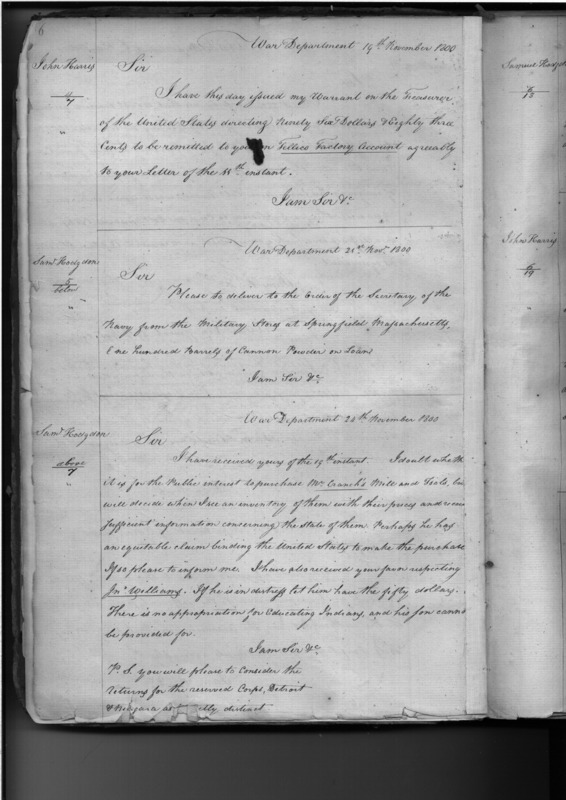 6
War Department 19th November 1800
John Harris
4
7
"
Sir
I have this day issued my Warrant on the Treasurer
of the United States directing Ninety Six Dollars & Eighty three
Cents to be remitted to you on Tellico Factory Account agreeably
to your Letter of the 11th instant.
I am Sir &c
War Department 21st Novr 1800
Saml Hodgdon
below
Sir
Please to deliver to the Order of the Secretary of the
Navy from the Military Stores at Springfield Massachusetts,
One hundred Barrels of Cannon Powder on Loan
I am Sir &c
War Department 24th November 1800
Saml Hodgdon
above
7
"
Sir
I have received yours of the 19th instant. I doubt wheth
it is for the Public interest to purchase Mr Cranch's Mill and Tools, but
will decide when I see an inventory of them with their prices and recei
sufficient information concerning the state of them. Perhaps he has
an equitable claim binding the United States to make the purchase
If so please to inform me. I have also received your favor respecting
Jno Williams. If he is in distress let him have the fifty dollars.
There is no appropriation for Educating Indians, and his son cannot
be provided for.
I am Sir &c
P.S. you will please to consider the
returns for the reserved Corps, Detroit
& Niagara as distinct
Samuel Hodgd
18
John Harris
6
19